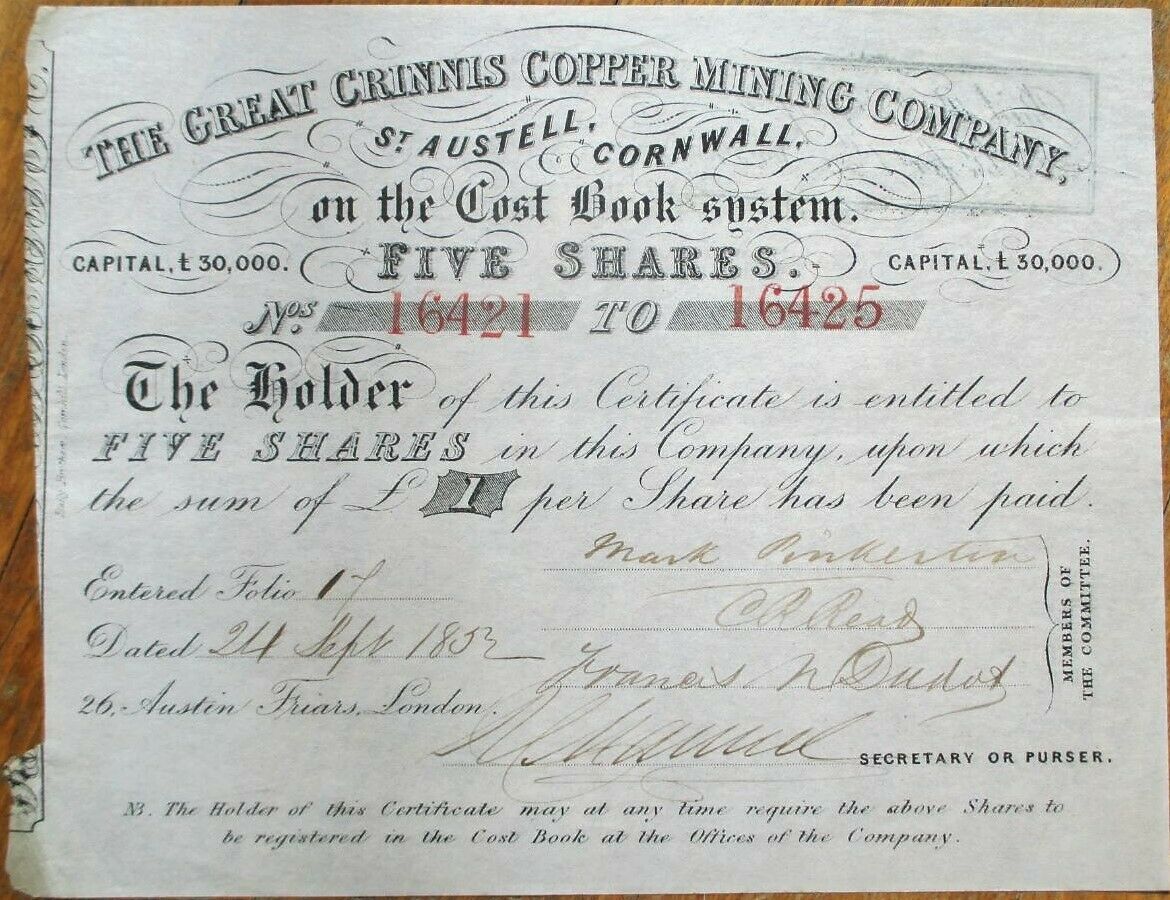 THE GREAT CRINNIS COPPER MINING COMPANY,
ST AUSTELL, CORNWALL,
on the Cost Book system.
CAPITAL, £30,000. FIVE SHARES. CAPITAL, £30,000.
Nos. 16421 TO 16425
The Holder of this Certificate is entitled to
FIVE SHARES in this Company, upon which
the sum of £ 1 per Share has been paid.
Mark Pinkerton
Entered Folio 17
C R Read
Dated 24 Sept 1852
Francis N Dudot
MEMBERS OF
THE COMMITTEE.
26, Austin Friars, London.
SECRETARY OR PURSER.
NB. The Holder of this Certificate may at any time require the above Shares to
be registered in the Cost Book at the Offices of the Company.